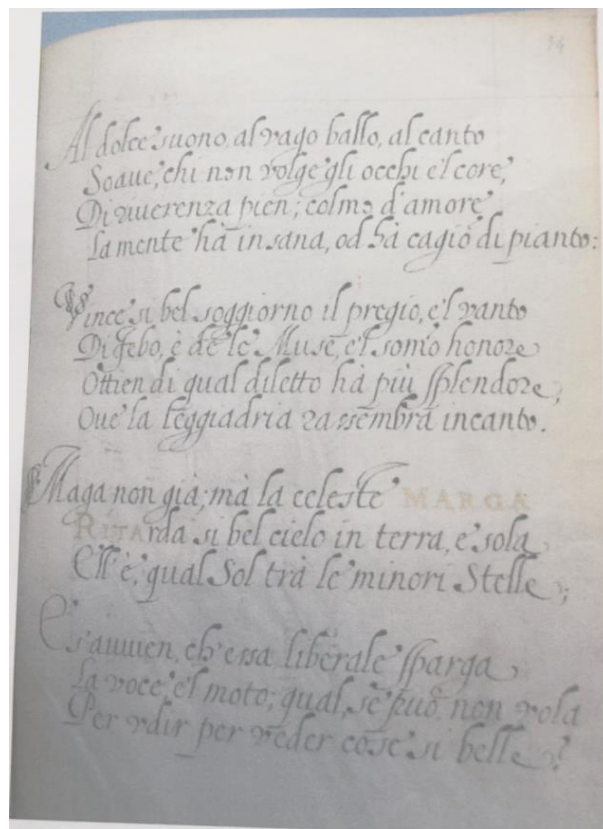 34
Al dolce suono, al vago ballo, al canto
Soaue, chi non volge gli occhi e'l core,
Di riuerenza pien; colmo d'amore
La mente hà insana, od hà cagiō di pianto:
Vince si bel soggiorno il pregio, e'l vanto
Di Febo, è de le Muse, e'l som̄o honore
Ottien di qual diletto hà più splendore,
Oue la leggiadria rassembra incanto.
Maga non già; mà la celeste MARGA
RITArda si bel cielo in terra, e sola
Ell'è, qual Sol trà le minori Stelle;
E s'auuien, ch'essa liberale sparga
La voce, e'l moto; qual, se può, non vola
Per vdir per veder cose si belle?